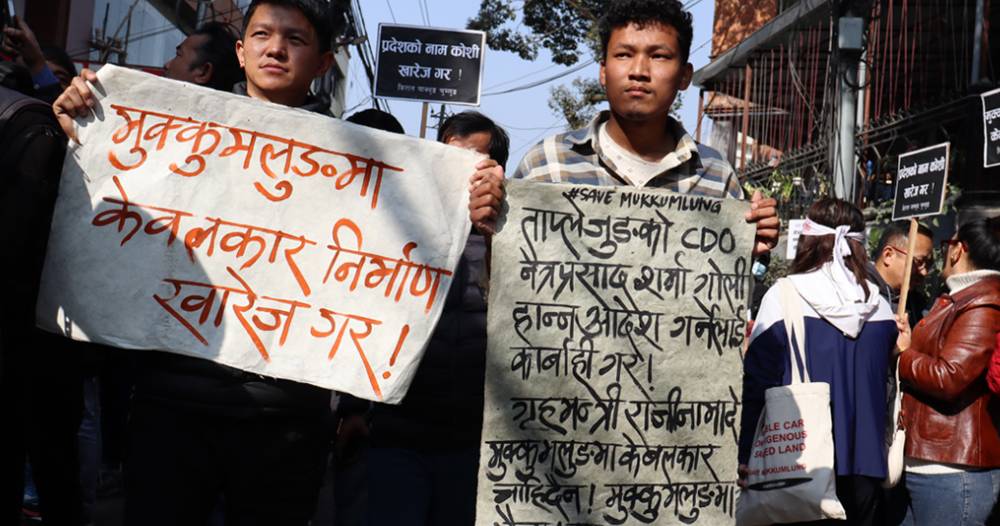 प्रदेशको नाम कोशी
खारेज गर !
मुक्कुमलुङमा
केवलकार निर्माण
खारेज गर!
#SAVE MUKKUMLUNG
ताप्लेजुङको CDO
नेत्रप्रसाद शर्मा गोली
हान्न आदेश गर्नेलाई
कार्बाही गर!
गृहमन्त्री राजीनामा दे
मुक्कुमलुङमा केबलकार
चाहिदैन! मुक्कुमलुङमा
प्रदेशको नाम कोशी
खारेज गर !
LE CAR
DIGENOUS
ED LAND
MUKKUMLUNG